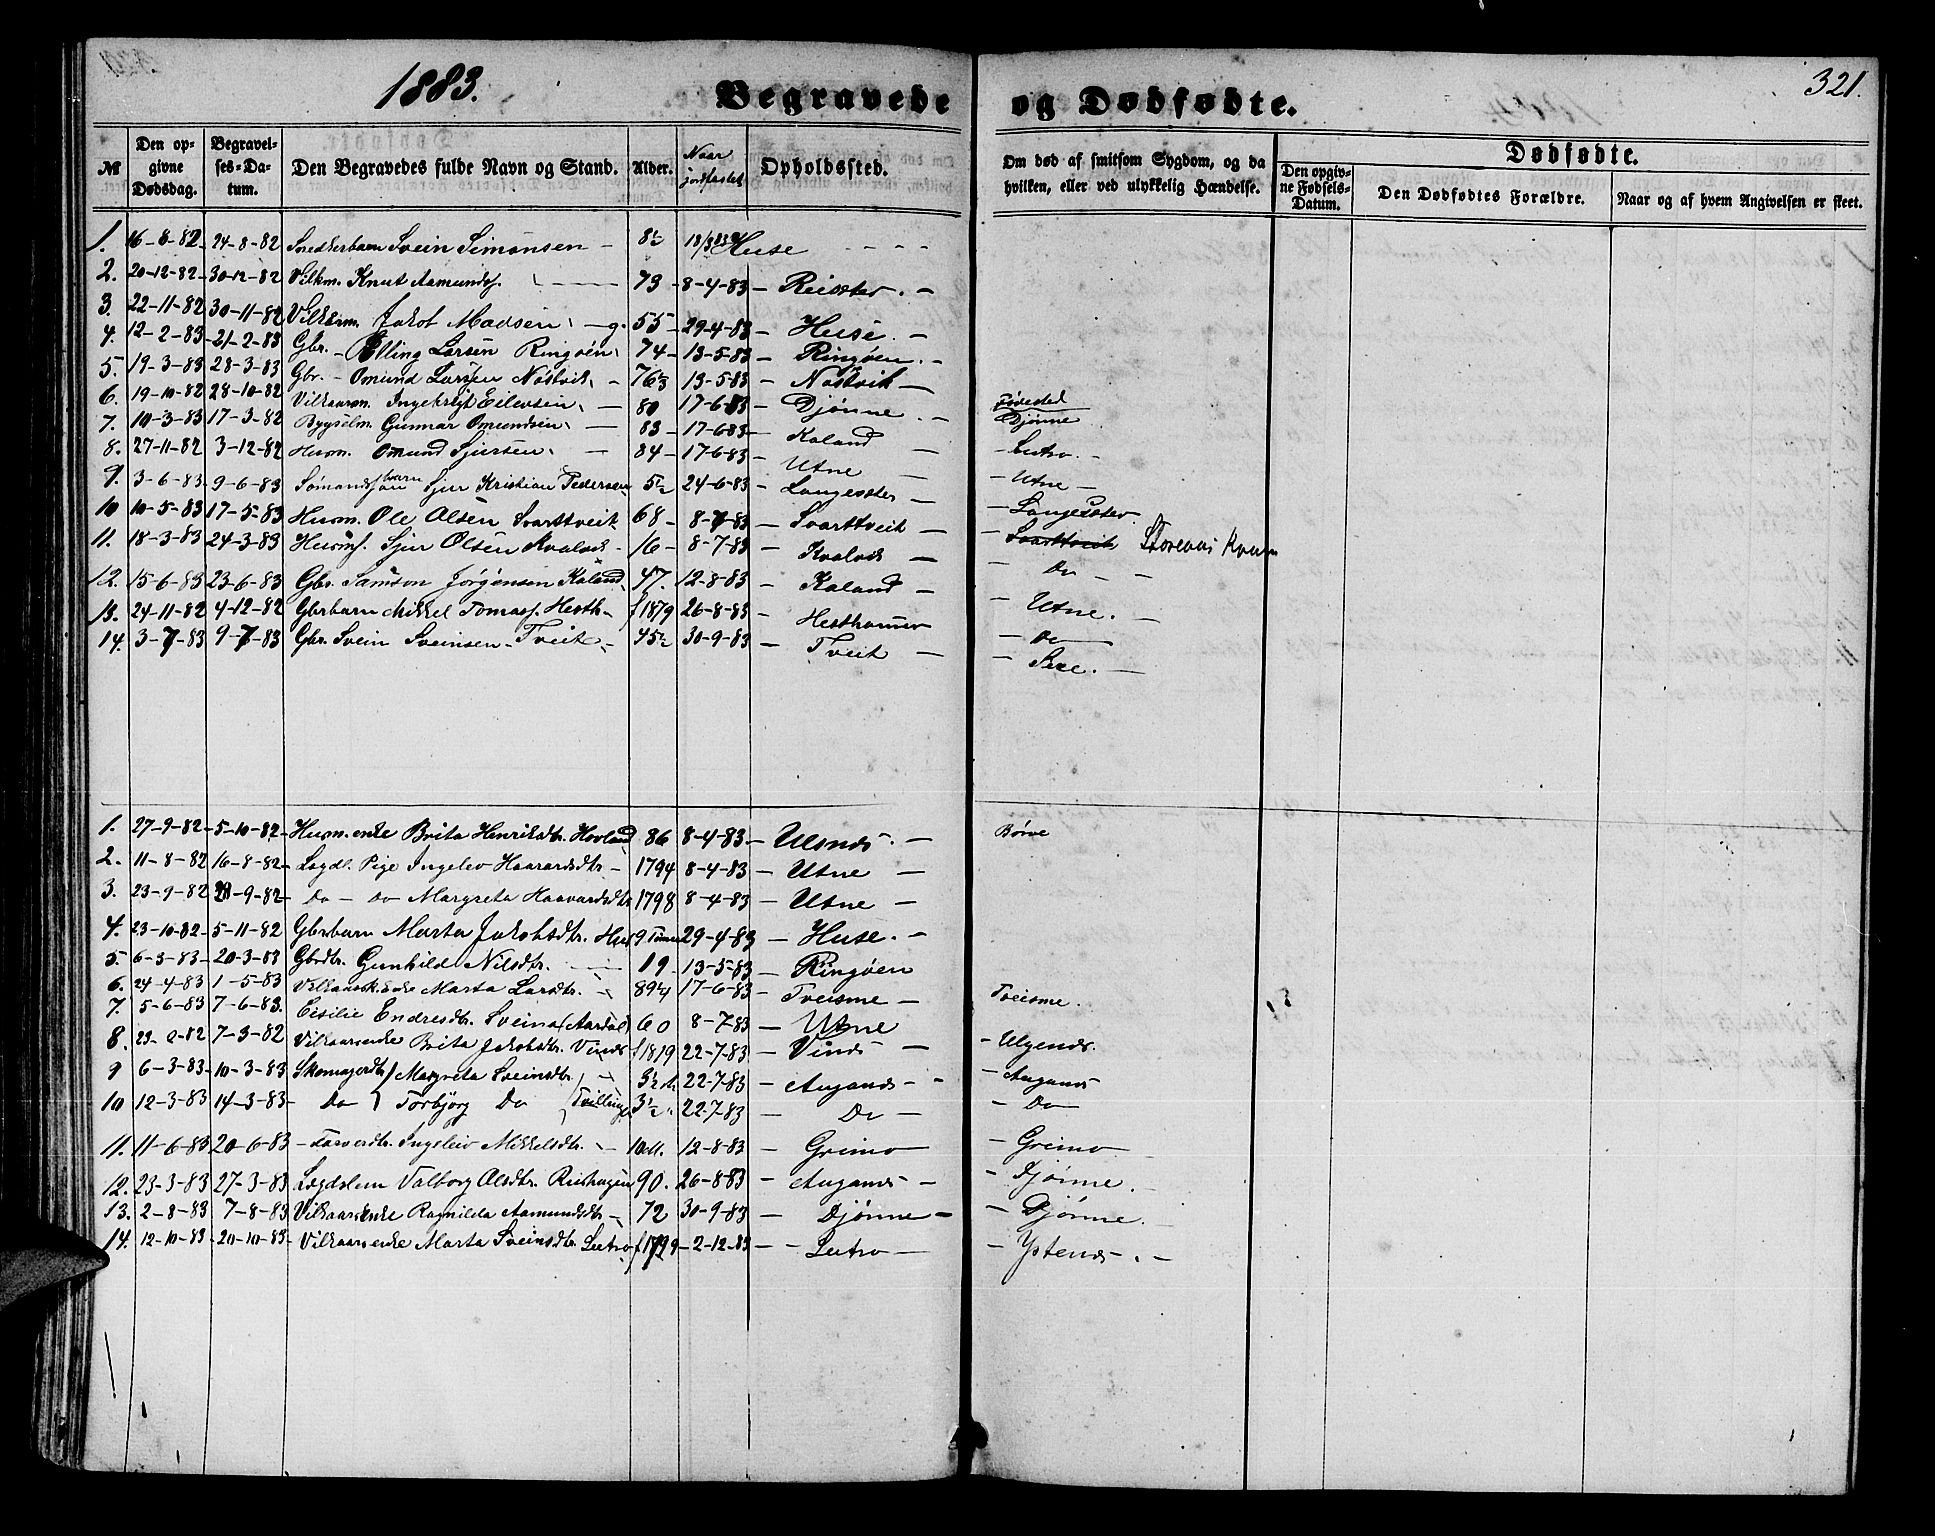 1883.
Begravede og Dødfødte.
321.
№ Den opgivne Dødsdag. Begravelses-Datum. Den Begravedes fulde Navn og Stand. Alder. Naar jordfæstet Opholdssted. Om død af smitsom Sygdom, og da hvilken, eller ved ulykkelig Hændelse. Dødfødte. Den opgivne Fødsels-Datum. Den Dødfødtes Forældre. Naar og af hvem Angivelsen er skeet.
1. 16-8-82 24-8-82 Snedkerbarn Svein Simonsen - 8½ 18/3 83 Huse
2. 20-12-82 30-12-82 Vilkm. Knut Aamunds. 73 8-4-83 Reisæter. -
3. 22-11-82 30-11-82 Vilkaarm. Jakob Madsen - g. 55 29-4-83 Huse. -
4. 12-2-83 21-2-83 Gbr. - Elling Larsen Ringøen 74 13-5-83 Ringøen. -
5. 19-3-83 28-3-83 Gbr. - Omund Larssen Nostvik 76⅔ 13-5-83 Nostvik -
6. 19-10-82 28-10-82 Vilkaarm. Ingebrigt Eilevsen 80 17-6-83 Djønne. - Fødested Djønne
7. 10-3-83 17-3-82 Bygselm. Gunnar Omundsen 83 17-6-83 Kaland - Lutro. -
8. 27-11-82 3-12-82 Husm. Omund Sjursen 84 17-6-83 Utne - Utne -
9. 3-6-83 9-6-83 Sømandsbarn Sjur Kristian Pedersen 5½ 24-6-83 Langesæter - Langesæter.
10 10-5-83 17-5-83 Husm. Ole Olsen Svarttveit 68 8-7-83 Svarttveit - Svarttveit Storenæs Kvam
11. 18-3-83 24-3-83 Husms. Sjur Olsen Kvalvik - 16 8-7-83 Kvalvik - Do - -
12. 15-6-83 23-6-83 Gbr. Samson Jørgensen Kaland 47. 12-8-83 Kaland - Utne. -
13. 24-11-82 4-12-82 Gbrbarn Mikkel Tomass. Hesth. f 1879 26-8-83 Hesthamar - Do
14. 3-7-83 9-7-83 Gbr. Svein Sveinsen Tveit 45½ 30-9-83 Tveit - Sexe. -
1. 27-9-82 5-10-82 Husm.enke Brita Henriksdtr. Hovland 86 8-4-83 Ulsnæs. - Børve
2. 11-8-82 16-8-82 Lægdl. Pige Ingelev Haavardsdtr. - 1794 8-4-83 Utne -
3. 23-9-82 28-9-82 Do - do Margreta Haavardsdtr 1798 8-4-83 Utne -
4. 23-10-82 5-11-82 Gbrbarn Marta Jakobsdtr. Huse 9 Timer 29-4-83 Huse. -
5. 6-3-83 20-3-83 Gbrdtr. Gunhilde Nilsdtr. 19 13-5-83 Ringøen
6. 24-4-83 1-5-83 Vilkaarsenke Marta Larsdtr. 89¼ 17-6-83 Tveisme - Tveisme.
7. 5-6-83 7-6-83. Cisilie Endresdtr. Sveina (Aardal) 60 8-7-83 Utne
8. 7-3-82 Vilkaarsenke Brita Jakobsdtr. Vinæs f 1819 22-7-83 Vinæs -
9 6-3-83 10-3-83 Skomagerdtr Margreta Sveinsdtr. 3½ 22-7-83 Auganæs - - Auganæs
10 12-3-83 14-3-83 Do Torbjørg Do (Tvillinge) 3½ 22-7-83 Do - Do
11. 11-6-83 20-6-83 Ingelev Mikkelsdtr. 10 M. 12-8-83 Grimo - Grimo
12. 23-3-83 27-3-83 Lægdslem Valborg Olsdtr. Rishagen 90. 26-8-83 Auganes - Djønne.
13. 2-8-83 7-8-83 Vilkaarsenke Ragnilda Aamundsdtr. 72 30-9-83 Djønne - Djønne.
14. 12-10-83 20-10-83 Vilkaarsenke Marta Sveinsdtr. Lutro f 1799 2-12-83 Lutro - Ystenæs. -